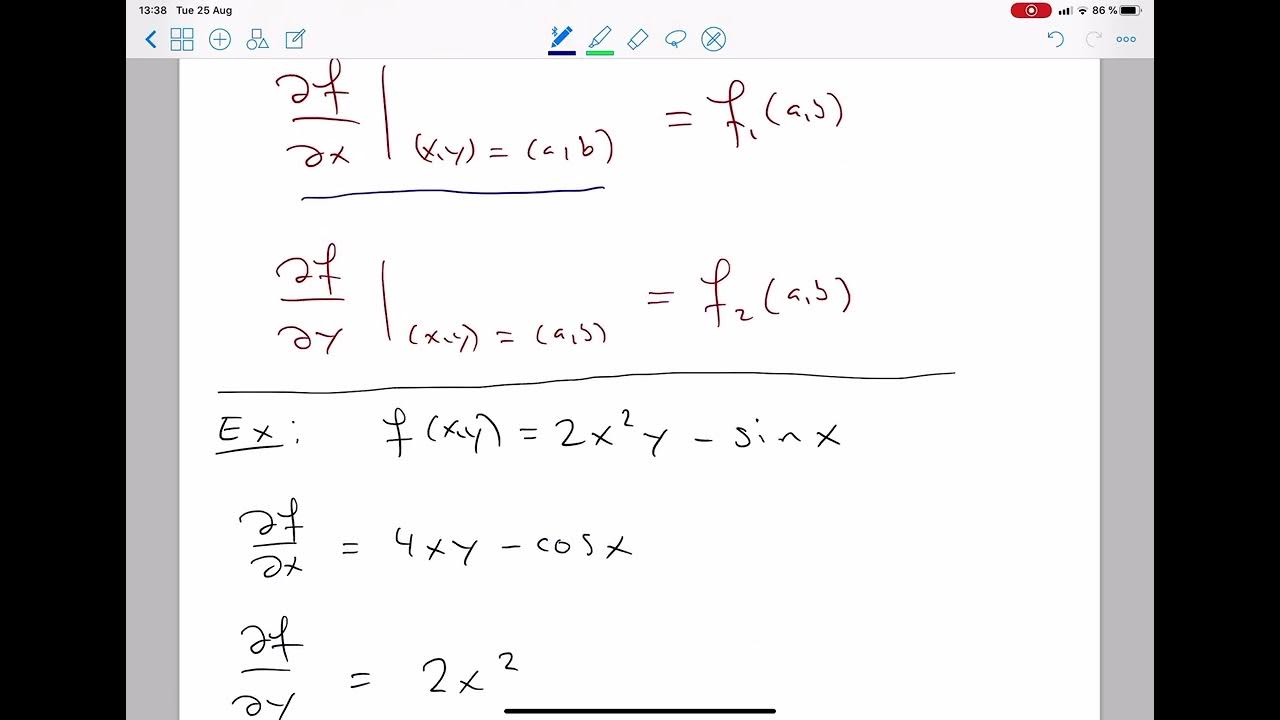 13:38 Tue 25 Aug 86 %
∂f/∂x |(x,y) = (a,b) = f₁(a,b)
∂f/∂y |(x,y) = (a,b) = f₂(a,b)
Ex: f(x,y) = 2x²y - sin x
∂f/∂x = 4xy - cosx
∂f/∂y = 2x²